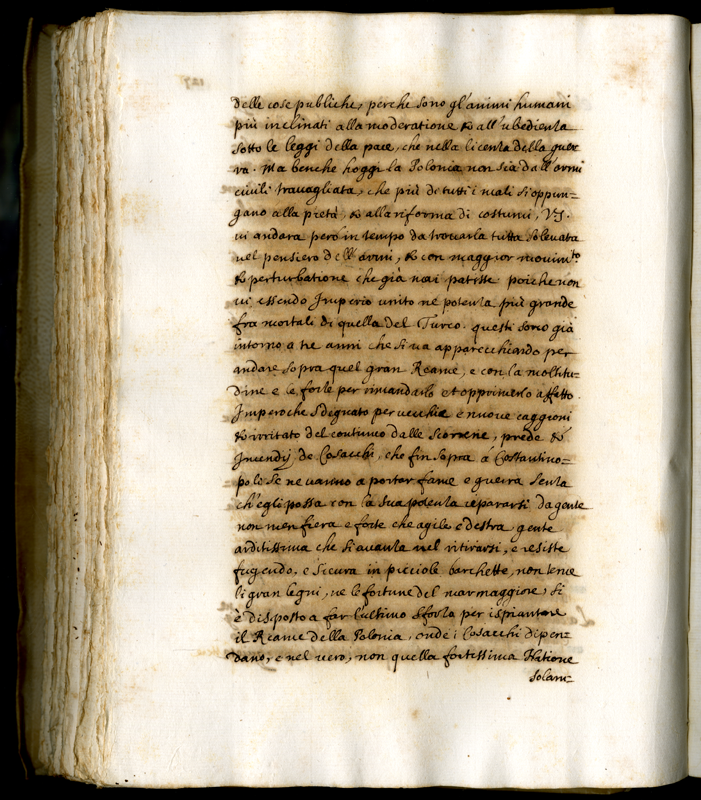 delle cose publiche, perche sono gl'animi humani
più inclinati alla moderatione & all'ubedienza
sotto le leggi della pace, che nella licenza della guer
ra. Ma benche hoggi la Polonia non sia dall'armi
civili travagliata, che più di tutti i mali si oppun=
gano alla pietà, & alla riforma di costumi, V.S.
vi andara però in tempo da trovarla tutta solevata
nel pensiero dell'armi, & con maggior movim.to
& perturbatione che già mai patisse poiche non
vi essendo Imperio unito ne potenza più grande
fra mortali di quella del Turco. questi sono già
intorno a tre anni che si va apparecchiando per
andare sopra quel gran Reame, e con la moltitu=
dine e le forze per inondarlo et opprimerlo affatto.
Imperoche sdegnato per vecchie e nuove caggioni
& irritato del continuo dalle scorrerie, prede &
Incendij de Cosacchi, che fin sopra à Costantino=
poli se ne vanno a portar fame e guerra senza
ch'egli possa con la sua potenza ripararsi da gente
non men fiera e forte che agile e destra gente
arditissima che si avanza nel ritirarsi, e resiste
fugendo, e sicura in picciole barchette, non teme
li gran legni, ne le fortune del mar maggiore, si
è disposto a far l'ultimo sforzo per ispiantare
il Reame della Polonia, onde i Cosacchi dipen=
dano, e nel vero, non quella fortissima Natione
solam=